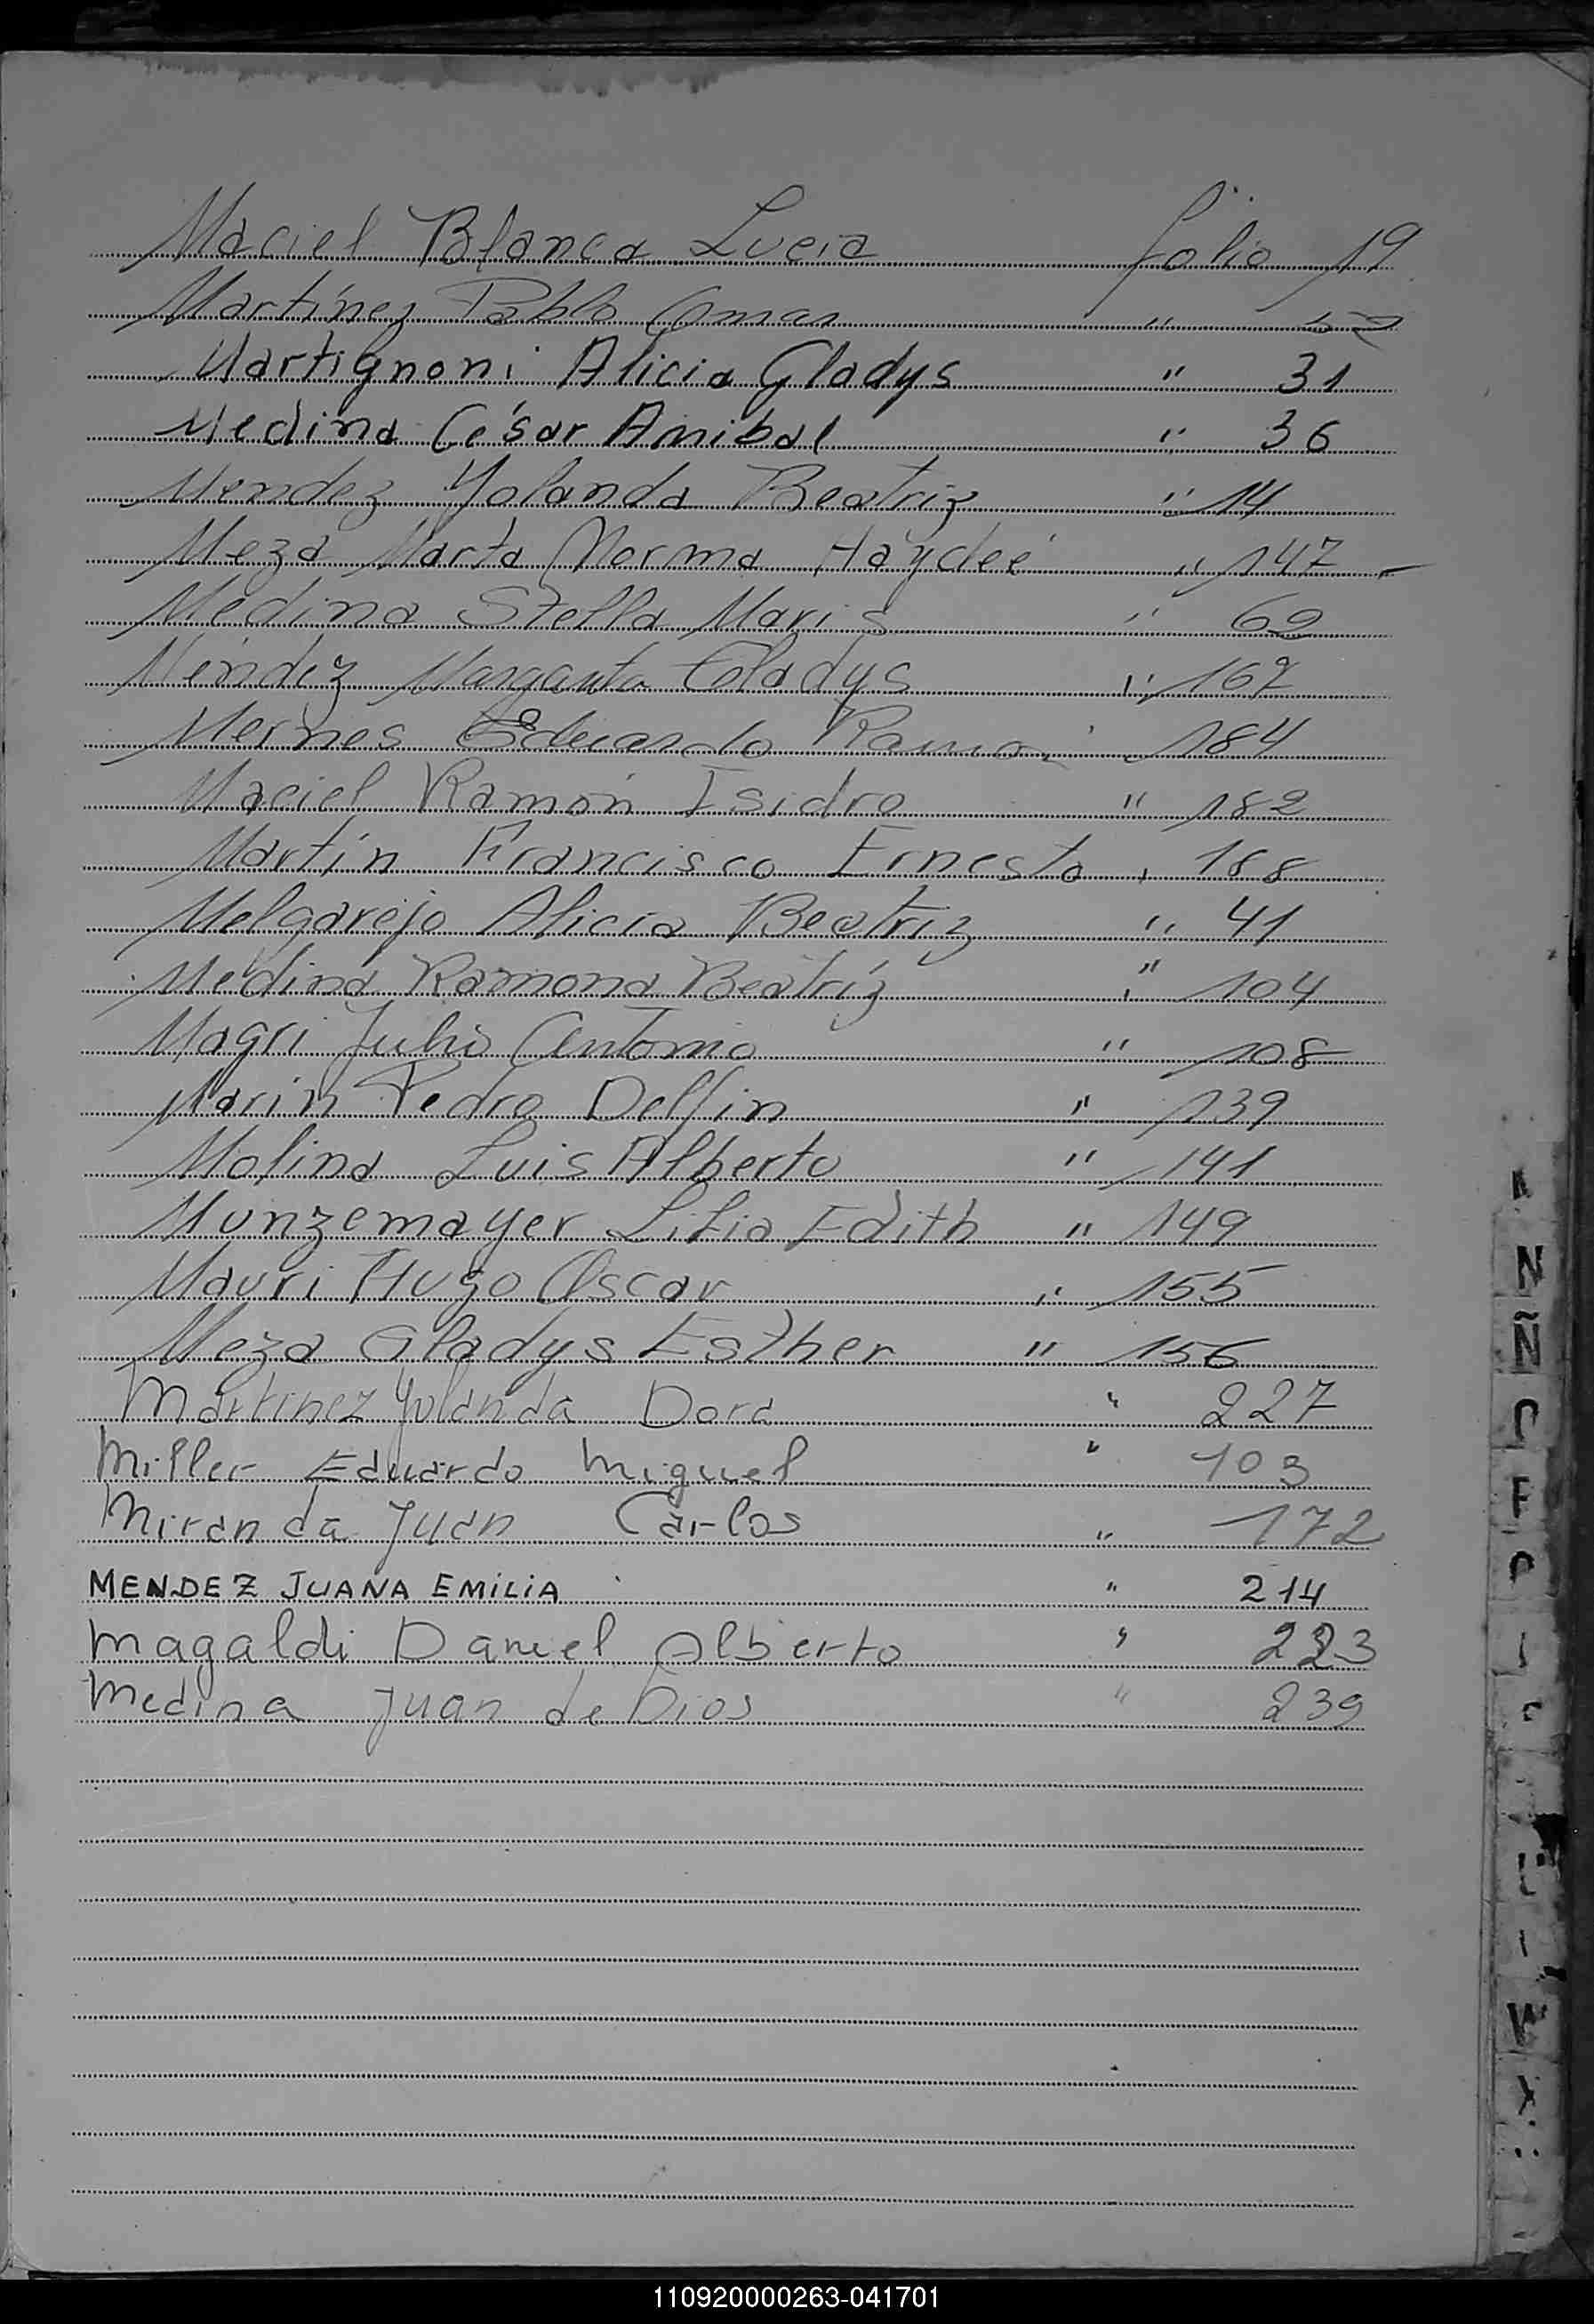 Maciel Blanca Lucia folio 19
Martínez Pablo Omar "
Martignoni Alicia Gladys " 31
Medina César Anibal " 36
Mendez Yolanda Beatriz " 14
Meza Marta Norma Haydeé " 147
Medina Stella Maris " 69
Méndez Margarita Gladys " 167
Mernes Eduardo Ramon " 184
Maciel Ramón Isidro " 182
Martín Francisco Ernesto " 188
Melgarejo Alicia Beatriz " 41
Medina Ramona Beatríz " 104
Magri Julio Antonio " 108
Marin Pedro Delfin " 139
Molina Luis Alberto " 141
Munzemayer Lilia Edith " 149
Mauri Hugo Oscar " 155
Meza Gladys Esther " 156
Martinez Yolanda Dora " 227
Miller Eduardo Miguel " 103
Miranda Juan Carlos " 172
MENDEZ JUANA EMILIA " 214
Magaldi Daniel Alberto " 223
Medina Juan de Dios " 239
N
Ñ
O
P
W
110920000263-041701